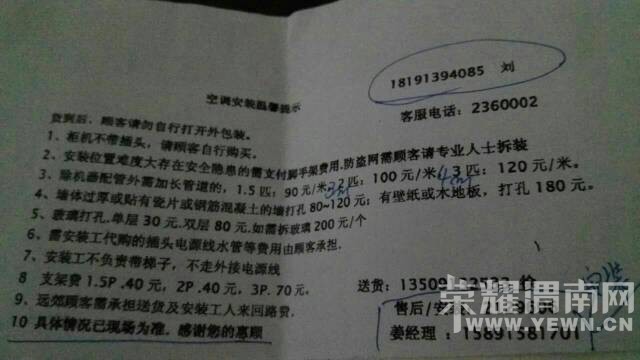 18191394085 刘
空调安装温馨提示
客服电话：2360002
货到后，顾客请勿自行打开外包装。
1、柜机不带插头，请顾客自行购买。
2、安装位置难度大存在安全隐患的需支付脚手架费用.防盗网需顾客请专业人士拆装
3、除机器配管外需加长管道的，1.5匹：90元/米，2匹：100元/米，3匹：120元/米。
4、墙体过厚或贴有瓷片或钢筋混凝土的墙打孔80~120元；有壁纸或木地板，打孔180元。
5、玻璃打孔.单层30元.双层80元.如需拆玻璃200元/个
6、需安装工代购的插头电源线水管等费用由顾客承担.
7、安装工不负责带梯子，不走外接电源线
8 支架费1.5P.40元，2P.40元，3P.70元。
9、远郊顾客需承担送货及安装工人来回路费.
10 具体情况已现场为准，感谢您的惠顾
送货：13509
售后/安
姜经理：15891581701
荣耀渭南网
WWW.YEWN.CN